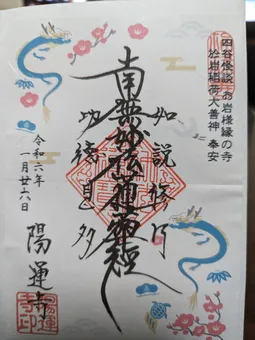 四谷怪談 お岩様縁の寺
於岩稲荷大善神 奉安
如説修行
南無妙法蓮華経
功徳甚多
令和六年
一月廿六日
陽運寺
陽運寺印